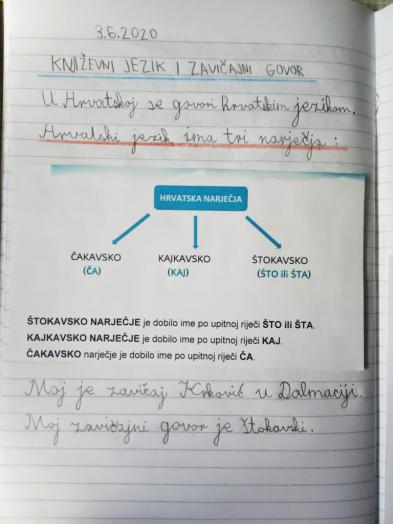 3.6.2020
KNJIŽEVNI JEZIK I ZAVIČAJNI GOVOR
U Hrvatskoj se govori hrvatskim jezikom.
Hrvatski jezik ima tri narječja :
HRVATSKA NARJEČJA
ČAKAVSKO KAJKAVSKO ŠTOKAVSKO
(ČA) (KAJ) (ŠTO ili ŠTA)
ŠTOKAVSKO NARJEČJE je dobilo ime po upitnoj riječi ŠTO ili ŠTA.
KAJKAVSKO NARJEČJE je dobilo ime po upitnoj riječi KAJ.
ČAKAVSKO narječje je dobilo ime po upitnoj riječi ČA.
Moj je zavičaj Krković u Dalmaciji.
Moj zavičajni govor je štokavski.